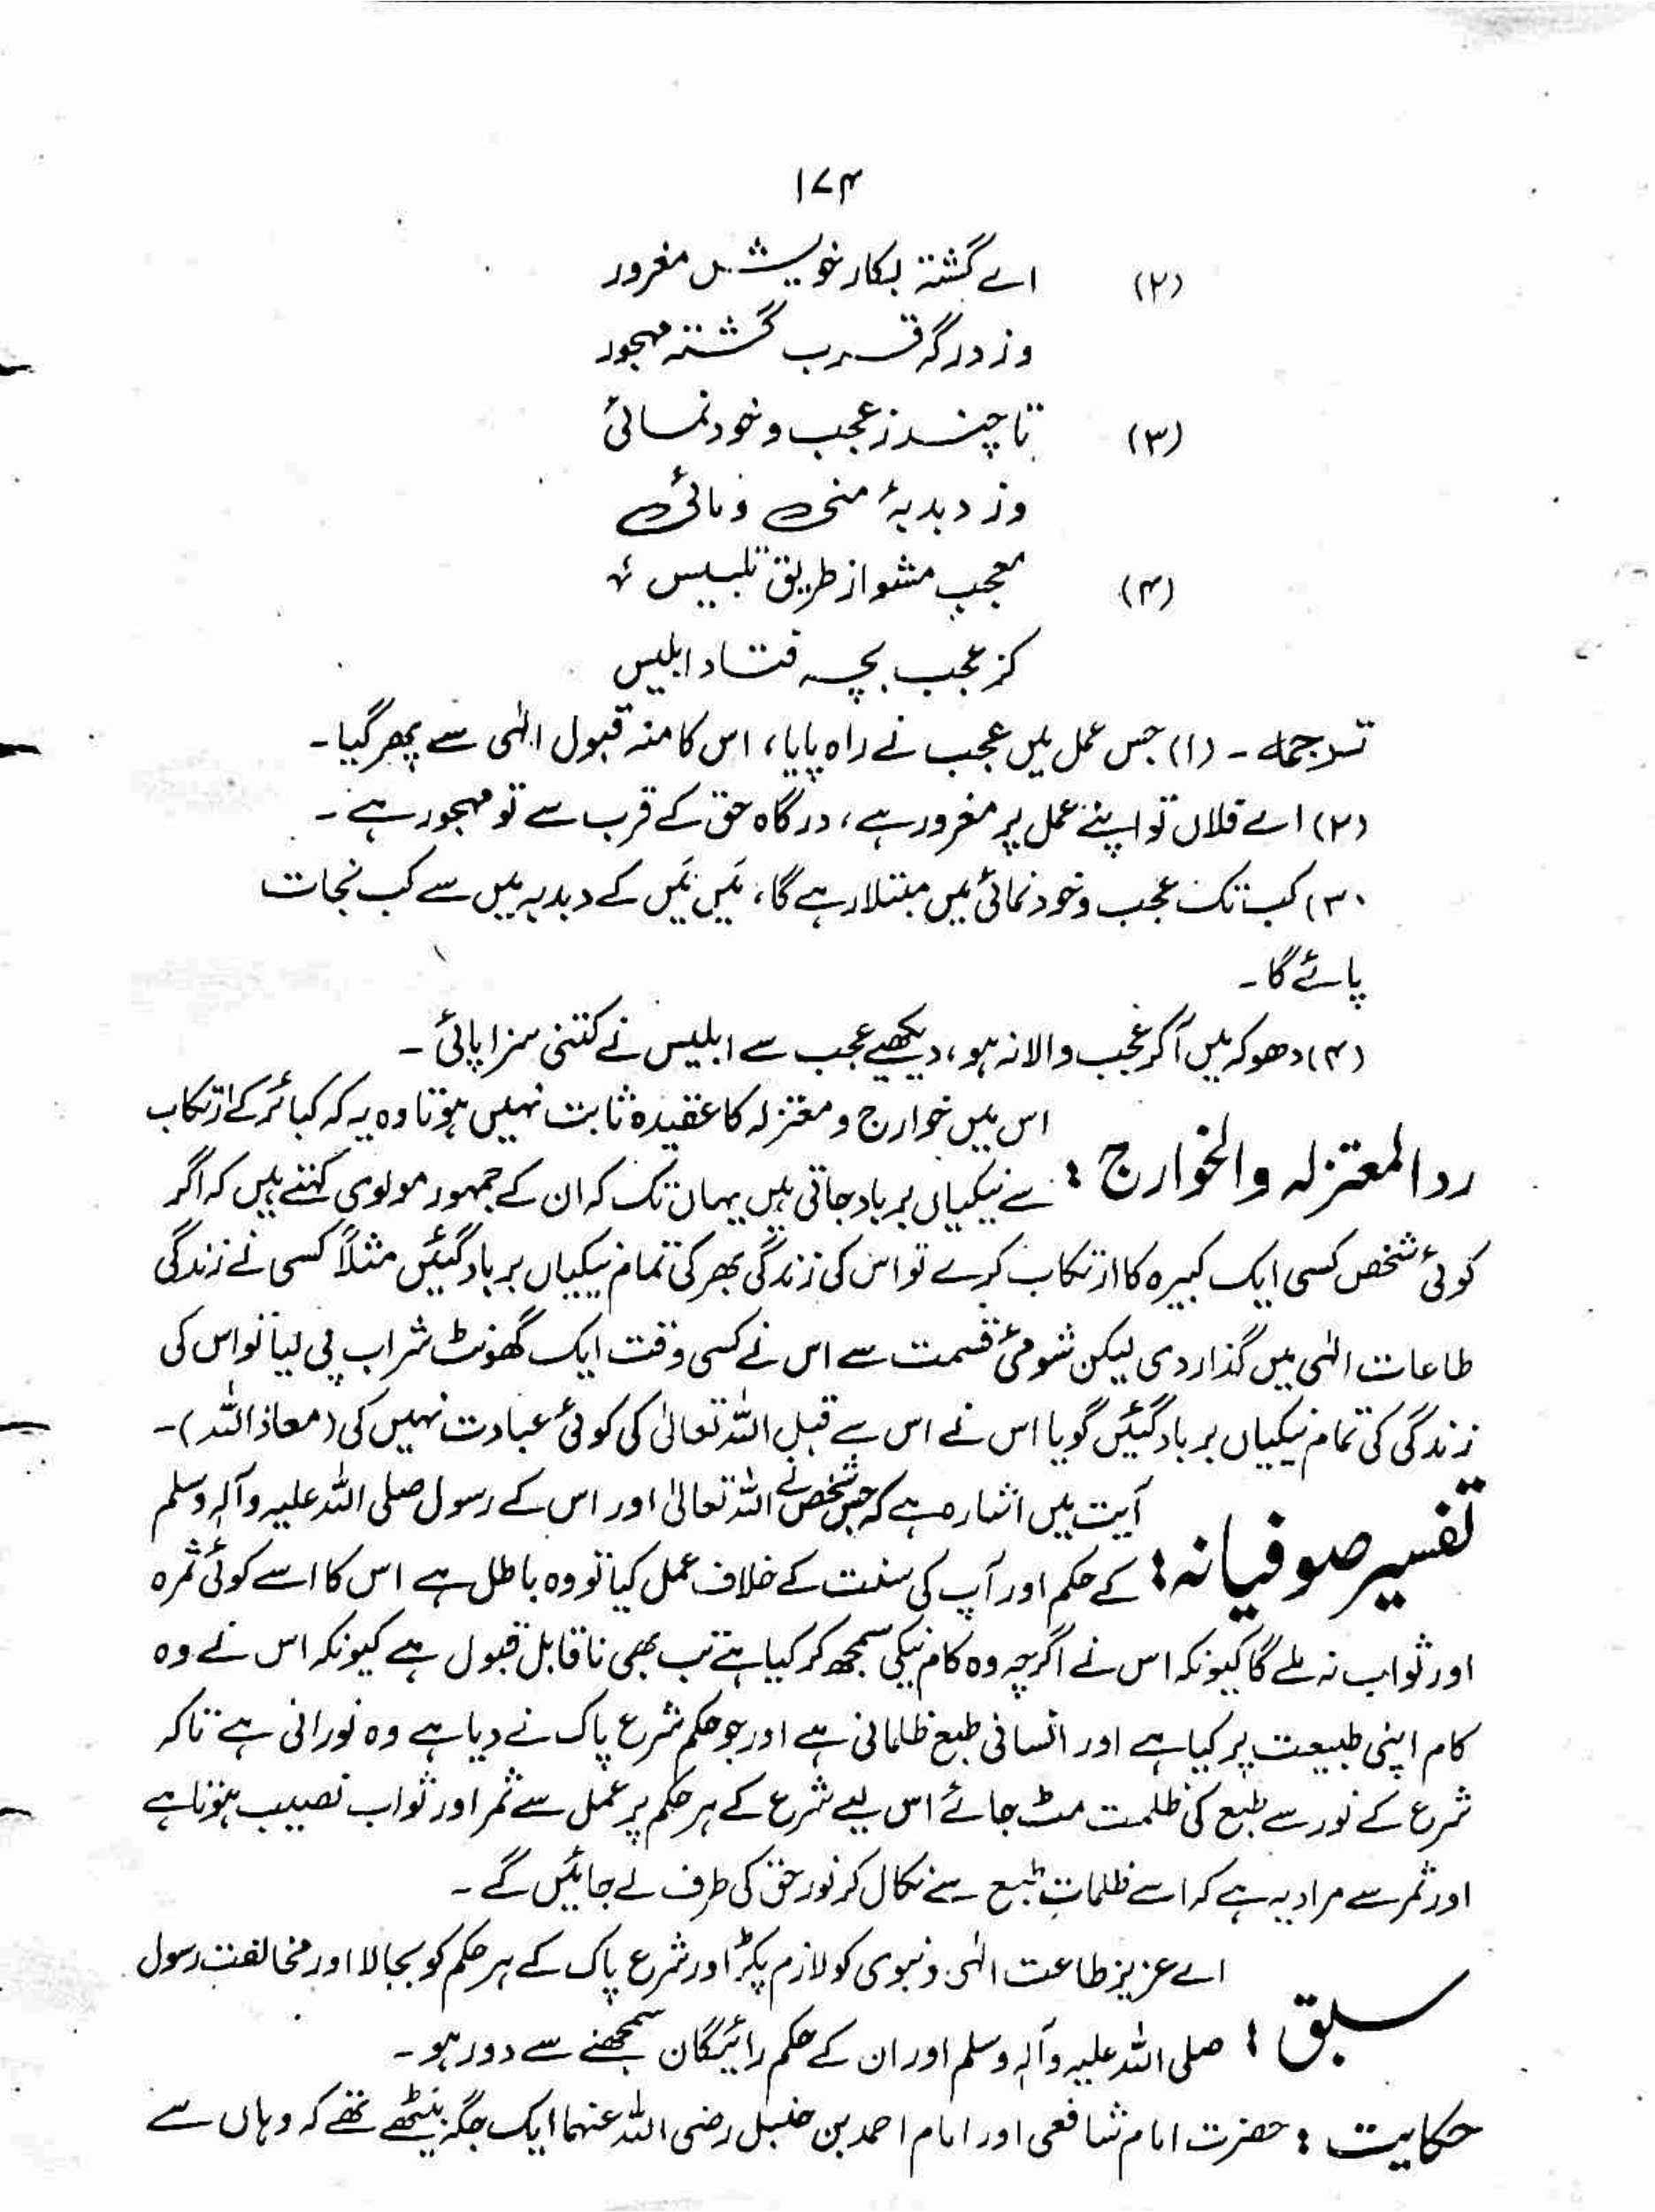 ۱۷۴
(۲) اے گشتہ بکار خویش مغرور
وز درگہ قرب گشتہ مہجور
(۳) تا چند ز عجب و خود نمائی
وز دبدبۂ منی و مائی
(۴) معجب مشو از طریق تلبیس
کز عجب بچہ فتاد ابلیس
ترجمہ ۔ (۱) جس عمل میں عجب نے راہ پایا، اس کا منہ قبول الٰہی سے پھر گیا ۔
(۲) اے فلاں تو اپنے عمل پر مغرور ہے، درگاہ حق کے قرب سے تو مہجور ہے ۔
(۳) کب تک عجب و خود نمائی میں مبتلا رہے گا، مَیں مَیں کے دبدبہ میں سے کب نجات
پائے گا ۔
(۴) دھوکہ میں آکر عجب والا نہ ہو، دیکھیے عجب سے ابلیس نے کتنی سزا پائی ۔
رد المعتزلہ والخوارج : اس میں خوارج و معتزلہ کا عقیدہ ثابت نہیں ہوتا وہ یہ کہ کبائر کے ارتکاب
سے نیکیاں برباد جاتی ہیں یہاں تک کہ ان کے جمہور مولوی کہتے ہیں کہ اگر
کوئی شخص کسی ایک کبیرہ کا ارتکاب کرے تو اس کی زندگی بھر کی تمام نیکیاں برباد گئیں مثلاً کسی نے زندگی
طاعات الٰہی میں گذار دی لیکن شومئ قسمت سے اس نے کسی وقت ایک گھونٹ شراب پی لیا تو اس کی
زندگی کی تمام نیکیاں برباد گئیں گویا اس نے اس سے قبل اللہ تعالیٰ کی کوئی عبادت نہیں کی (معاذ اللہ) ۔
تفسیر صوفیانہ : آیت میں اشارہ ہے کہ جس شخص نے اللہ تعالیٰ اور اس کے رسول صلی اللہ علیہ وآلہٖ وسلم
کے حکم اور آپ کی سنت کے خلاف عمل کیا تو وہ باطل ہے اس کا اسے کوئی ثمرہ
اور ثواب نہ ملے گا کیونکہ اس نے اگرچہ وہ کام نیکی سمجھ کر کیا ہے تب بھی ناقابل قبول ہے کیونکہ اس نے وہ
کام اپنی طبیعت پر کیا ہے اور انسانی طبع ظلمانی ہے اور جو حکم شرع پاک نے دیا ہے وہ نورانی ہے تاکہ
شرع کے نور سے طبع کی ظلمت مٹ جائے اس لیے شرع کے ہر حکم پر عمل سے ثمر اور ثواب نصیب ہوتا ہے
اور ثمر سے مراد یہ ہے کہ اسے ظلمات طبع سے نکال کر نور حق کی طرف لے جائیں گے ۔
سبق : اے عزیز طاعت الٰہی و نبوی کو لازم پکڑ اور شرع پاک کے ہر حکم کو بجا لا اور مخالفت رسول
صلی اللہ علیہ وآلہٖ وسلم اور ان کے حکم رائیگاں سمجھنے سے دور ہو ۔
حکایت : حضرت امام شافعی اور امام احمد بن حنبل رضی اللہ عنہما ایک جگہ بیٹھے تھے کہ وہاں سے